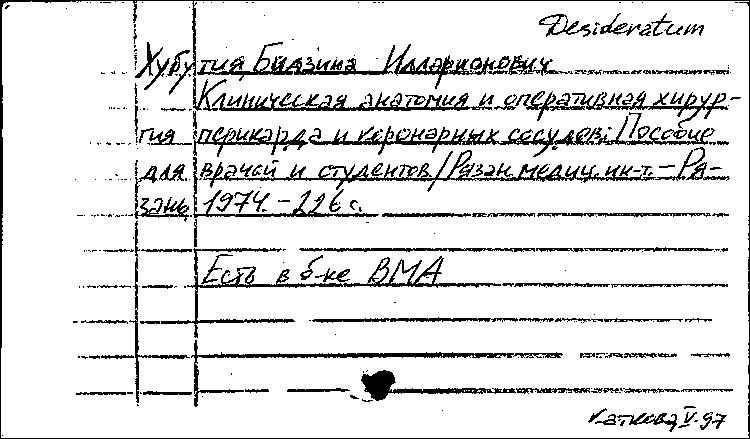 Desideratum
Хубутия Бидзина Илларионович
Клиническая анатомия и оперативная хирур-
гия перикарда и коронарных сосудов: Пособие
для врачей и студентов/Рязан. медиц. ин-т. – Ря-
зань, 1974. – 226 с.
Есть в б-ке ВМА
V-97